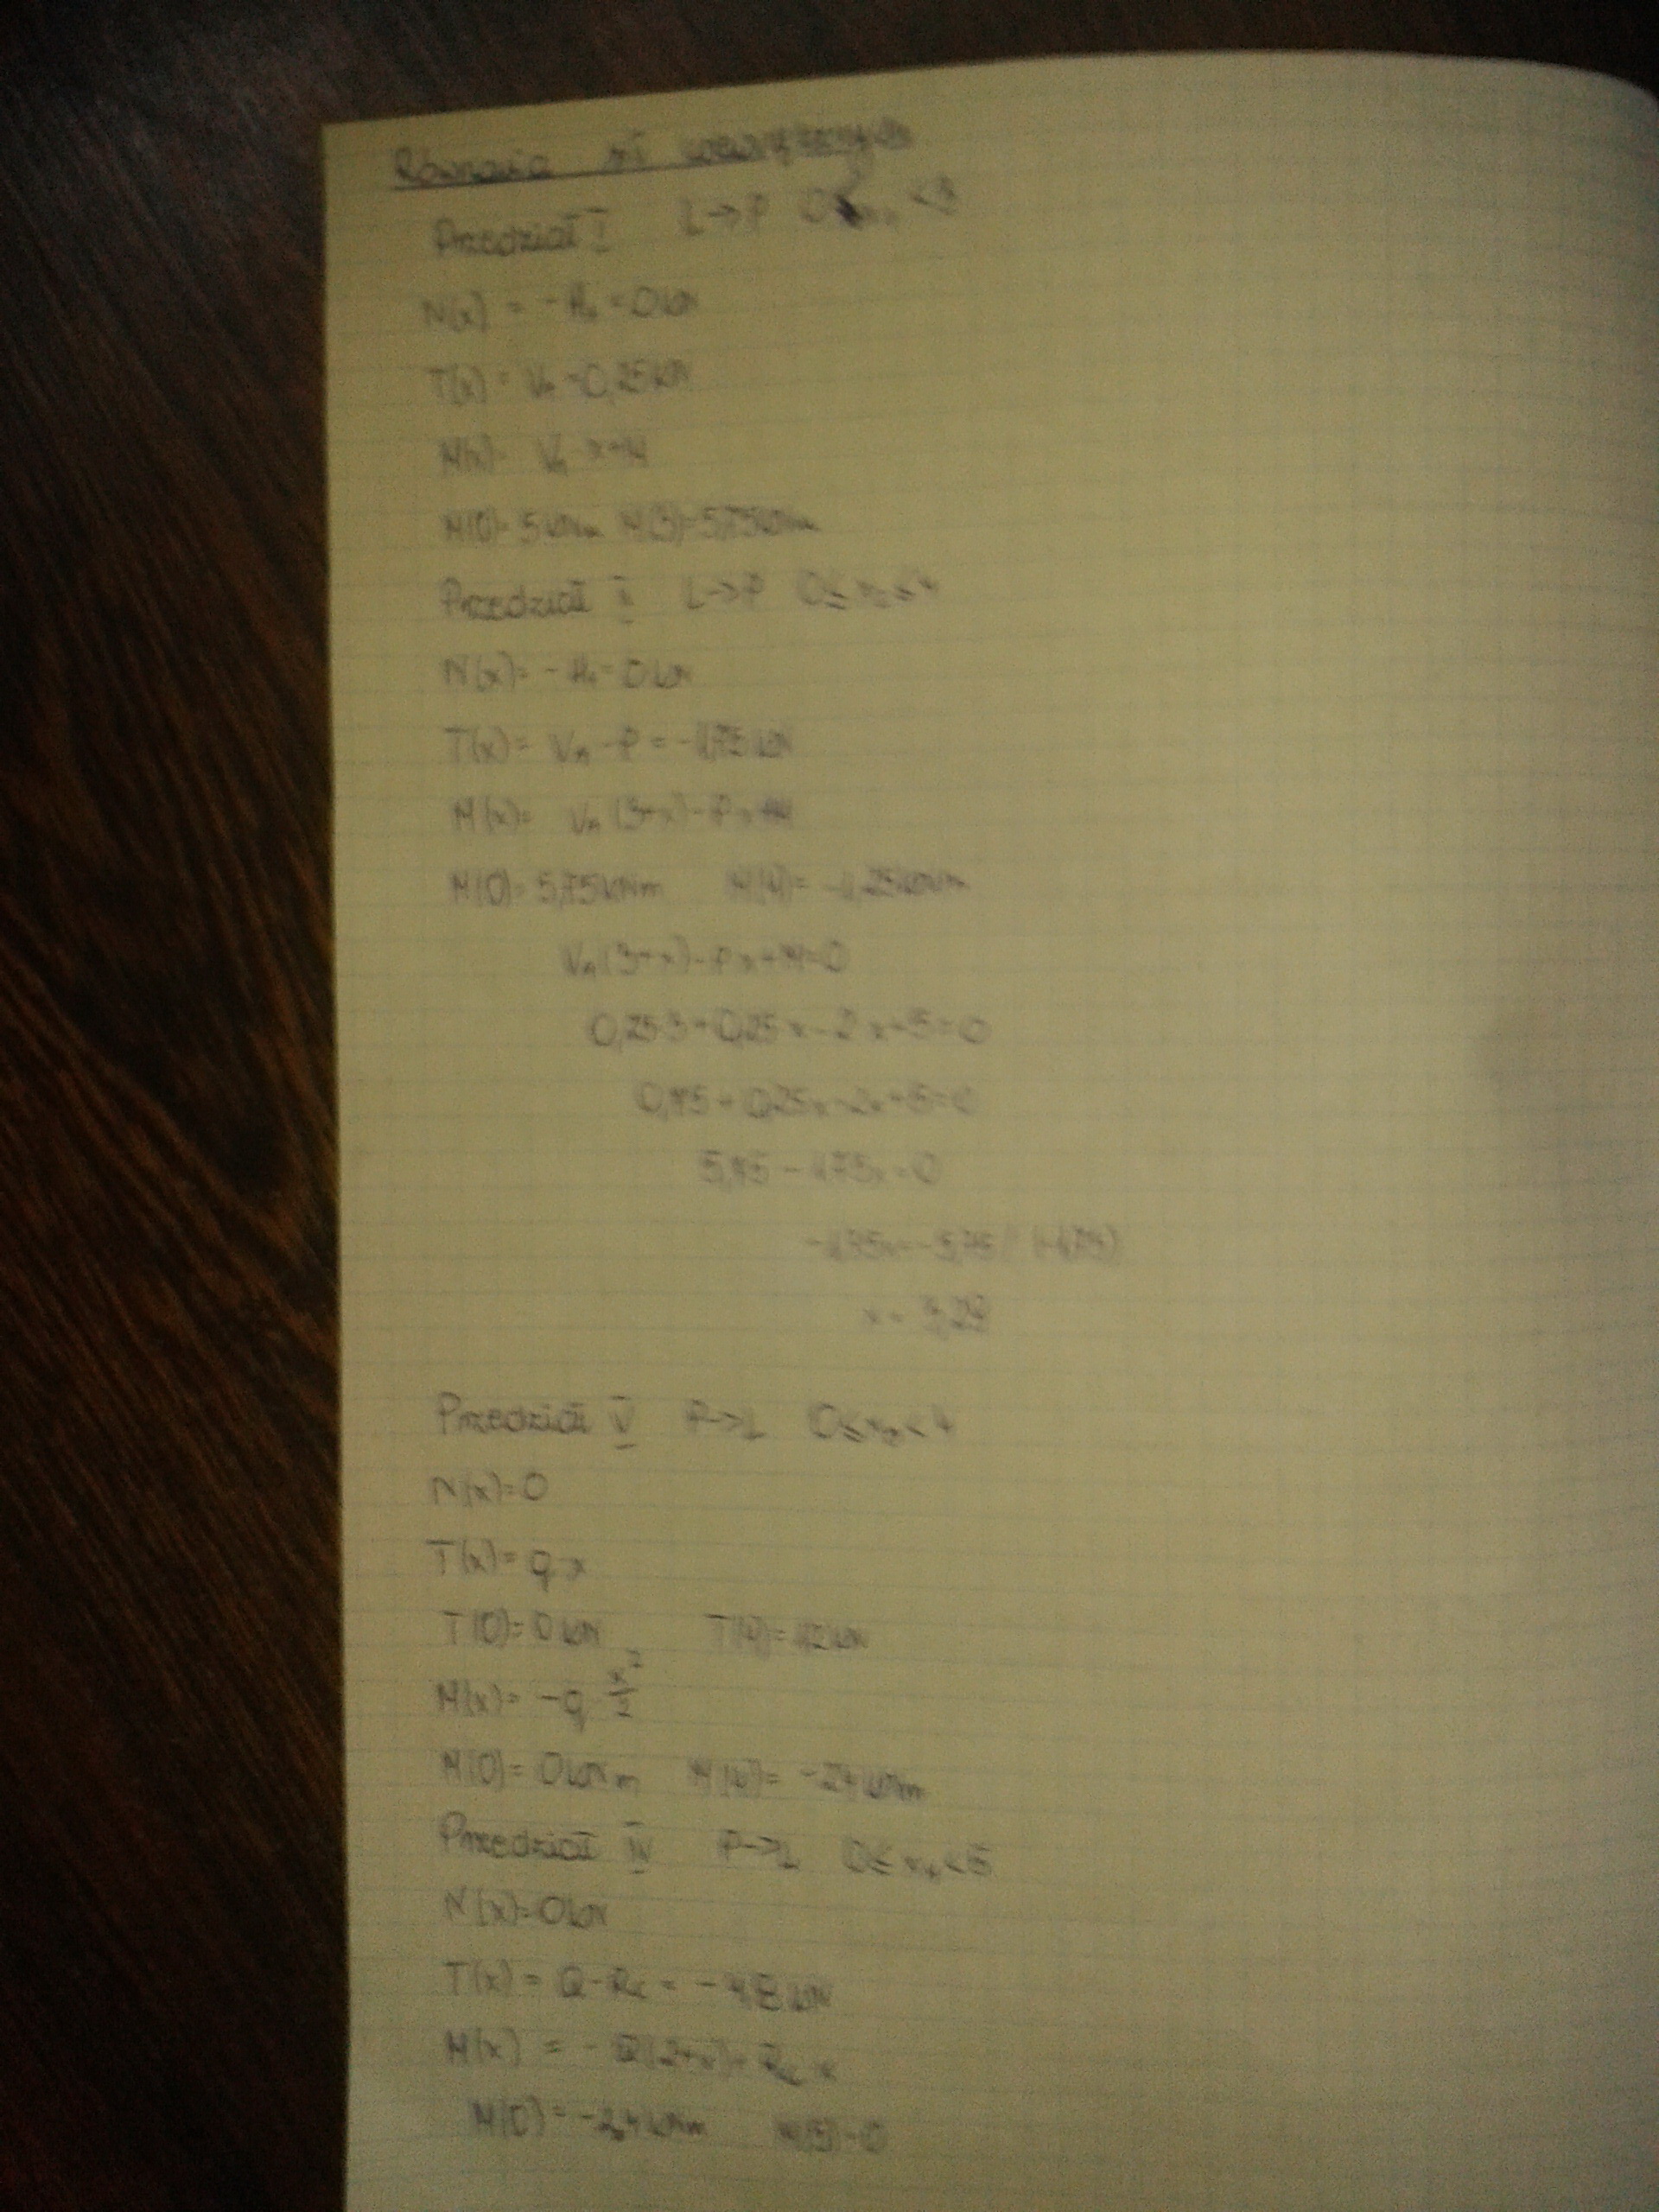 Równania sił wewnętrznych
Przedział I L→P 0≤x₁<3
N(x) = -Hₐ = 0kN
T(x) = Vₐ = 0,25kN
M(x)= Vₐ·x+M
M(0)= 5kNm M(3)=5,75kNm
Przedział II L→P 0≤x₂<4
N(x)= -Hₐ = 0kN
T(x)= Vₐ-P = -1,75kN
M(x)= Vₐ(3+x)-Px+M
M(0)= 5,75kNm M(4)= -1,25kNm
Vₐ(3+x)-Px+M=0
0,25·3+0,25x-2x+5=0
0,75+0,25x-2x+5=0
5,75-1,75x=0
-1,75x=-5,75 /:(-1,75)
x = 3,29
Przedział V P→L 0≤x₅<4
N(x)=0
T(x)=q·x
T(0)=0kN T(4)=12kN
M(x)= -q x²/2
M(0)= 0kNm M(4)= -24kNm
Przedział IV P→L 0≤x₄<5
N(x)=0kN
T(x)= Q-R꜀ = kN
M(x) = -Q(2+x)+R꜀·x
M(0)= -24kNm M(5)=0